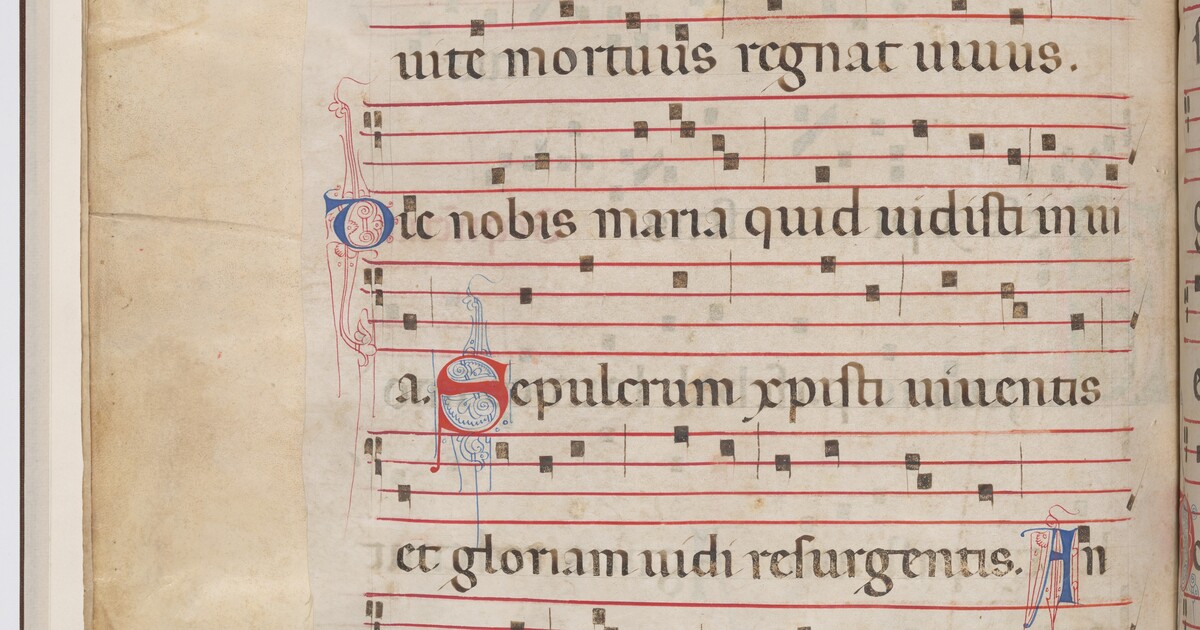 uite mortuus regnat uiuus.
Dic nobis maria quid uidisti in ui
a. Sepulcrum xpisti uiuentis
et gloriam uidi resurgentis. An